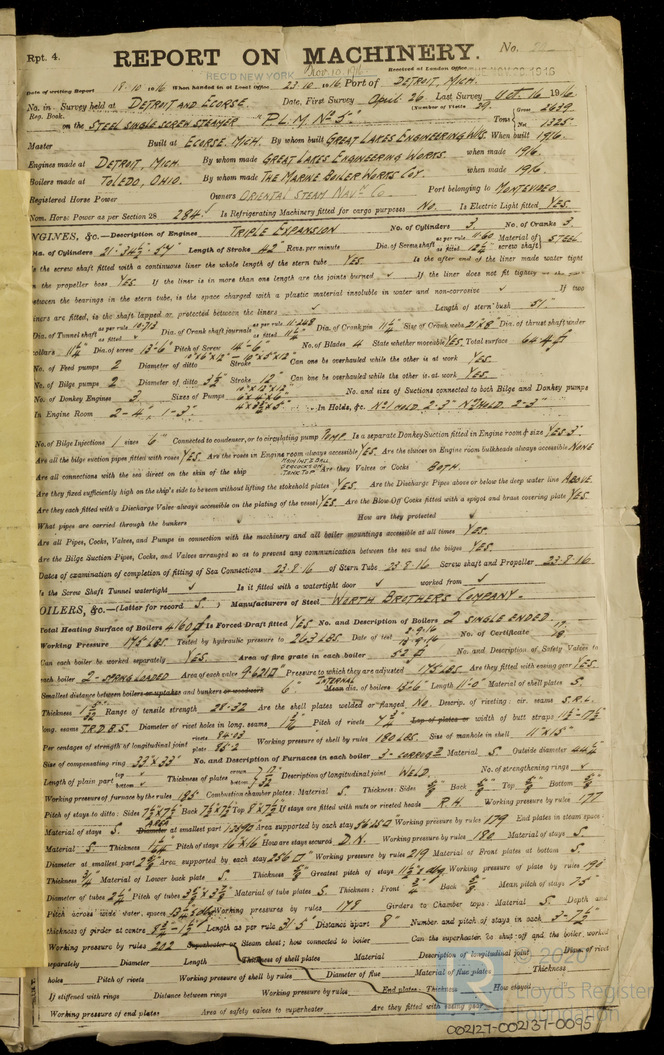 Rpt. 4.
REPORT ON MACHINERY.
No.
REC'D NEW YORK Nov. 10. 1916
Received at London Office
Date of writing Report 18.10.1916 When handed in at Local Office 23.10.1916 Port of DETROIT, MICH.
No. in Survey held at DETROIT AND ECORSE. Date, First Survey April 26 Last Survey Oct 16 1916
Reg. Book. (Number of Visits 39.
on the STEEL SINGLE SCREW STEAMER "P.L.M. No 5." Tons Gross 2639 Net 1325
Master Built at ECORSE, MICH. By whom built GREAT LAKES ENGINEERING WKS. When built 1916.
Engines made at DETROIT, MICH. By whom made GREAT LAKES ENGINEERING WORKS. when made 1916.
Boilers made at TOLEDO, OHIO. By whom made THE MARINE BOILER WORKS COY. when made 1916.
Registered Horse Power Owners ORIENTAL STEAM NAVN. Co Port belonging to MONTEVIDEO.
Nom. Horse Power as per Section 28 284. Is Refrigerating Machinery fitted for cargo purposes NO. Is Electric Light fitted YES
ENGINES, &c.—Description of Engines TRIPLE EXPANSION No. of Cylinders 3 No. of Cranks 3.
Dia. of Cylinders 21"-34½"-57" Length of Stroke 42" Revs. per minute Dia. of Screw shaft as per rule 11.60 as fitted 12½" Material of screw shaft STEEL
Is the screw shaft fitted with a continuous liner the whole length of the stern tube YES Is the after end of the liner made water tight
in the propeller boss YES. If the liner is in more than one length are the joints burned ✓ If the liner does not fit tightly
between the bearings in the stern tube, is the space charged with a plastic material insoluble in water and non-corrosive ✓ If two
liners are fitted, is the shaft lapped or protected between the liners ✓ Length of stern bush 51"
Dia. of Tunnel shaft as per rule 10.713 as fitted ✓ Dia. of Crank shaft journals as per rule 11.248 as fitted 11½" Dia. of Crank pin 11½" Size of Crank webs 21"x8" Dia. of thrust shaft under
collars 11½" Dia. of screw 13'-6" Pitch of Screw 14'-6" No. of Blades 4 State whether moveable YES Total surface 64.4
No. of Feed pumps 2 Diameter of ditto Stroke Can one be overhauled while the other is at work YES.
No. of Bilge pumps 2 Diameter of ditto 3½" Stroke 12" Can one be overhauled while the other is at work YES.
No. of Donkey Engines 3. Sizes of Pumps No. and size of Suctions connected to both Bilge and Donkey pumps
In Engine Room 2-4", 1-3" In Holds, &c. No 1 HOLD. 2-3" No 2 HOLD. 2-3"
No. of Bilge Injections 1 sizes 6" Connected to condenser, or to circulating pump PUMP. Is a separate Donkey Suction fitted in Engine room & size YES 3"
Are all the bilge suction pipes fitted with roses YES. Are the roses in Engine room always accessible YES. Are the sluices on Engine room bulkheads always accessible NONE
Are all connections with the sea direct on the skin of the ship Are they Valves or Cocks BOTH.
Are they fixed sufficiently high on the ship's side to be seen without lifting the stokehold plates YES. Are the Discharge Pipes above or below the deep water line ABOVE
Are they each fitted with a Discharge Valve always accessible on the plating of the vessel YES. Are the Blow Off Cocks fitted with a spigot and brass covering plate YES.
What pipes are carried through the bunkers ✓ How are they protected ✓
Are all Pipes, Cocks, Valves, and Pumps in connection with the machinery and all boiler mountings accessible at all times YES.
Are the Bilge Suction Pipes, Cocks, and Valves arranged so as to prevent any communication between the sea and the bilges YES.
Dates of examination of completion of fitting of Sea Connections 23-8-16 of Stern Tube 23-8-16 Screw shaft and Propeller 23-8-16
Is the Screw Shaft Tunnel watertight ✓ Is it fitted with a watertight door ✓ worked from ✓
BOILERS, &c.—(Letter for record S.) Manufacturers of Steel WORTH BROTHERS COMPANY.
Total Heating Surface of Boilers 4160 Is Forced Draft fitted YES No. and Description of Boilers 2 SINGLE ENDED
Working Pressure 175 LBS. Tested by hydraulic pressure to 263 LBS. Date of test No. of Certificate
Can each boiler be worked separately YES. Area of fire grate in each boiler 52 No. and Description of Safety Valves to
each boiler 2 - SPRING LOADED Area of each valve Pressure to which they are adjusted 175 LBS. Are they fitted with easing gear YES.
Smallest distance between boilers or uptakes and bunkers or woodwork 6" INTERNAL Mean dia. of boilers 13'-6" Length 11'-0" Material of shell plates S.
Thickness Range of tensile strength 28-32 Are the shell plates welded or flanged NO Descrip. of riveting: cir. seams S.R.L.
long. seams T.R.D.B.S. Diameter of rivet holes in long. seams Pitch of rivets Lap of plates or width of butt straps
Per centages of strength of longitudinal joint rivets 84.03 plate 85.2 Working pressure of shell by rules 180 LBS. Size of manhole in shell 11"x15"
Size of compensating ring 33"x33" No. and Description of Furnaces in each boiler 3-CORRUGD Material S. Outside diameter 44½"
Length of plain part top bottom Thickness of plates crown bottom Description of longitudinal joint WELD. No. of strengthening rings ✓
Working pressure of furnace by the rules 185 Combustion chamber plates: Material S. Thickness: Sides Back Top Bottom
Pitch of stays to ditto: Sides 7½"x7½" Back 7½"x7½" Top 8"x7½" If stays are fitted with nuts or riveted heads R.H. Working pressure by rules 177
Material of stays S. Diameter AREA at smallest part Area supported by each stay Working pressure by rules 179 End plates in steam space:
Material S. Thickness Pitch of stays 16"x16" How are stays secured D.N. Working pressure by rules 180 Material of stays S.
Diameter at smallest part Area supported by each stay 256 Working pressure by rules 219 Material of Front plates at bottom S.
Thickness ¾" Material of Lower back plate S. Thickness Greatest pitch of stays Working pressure of plate by rules 190
Diameter of tubes Pitch of tubes Material of tube plates S. Thickness: Front Back Mean pitch of stays
Pitch across wide water spaces Working pressures by rules 178 Girders to Chamber tops: Material S. Depth and
thickness of girder at centre Length as per rule Distance apart 8" Number and pitch of stays in each 3-7½"
Working pressure by rules 202 Superheater or Steam chest; how connected to boiler Can the superheater be shut off and the boiler worked
separately Diameter Length Thickness of shell plates Material Description of longitudinal joint Diam. of rivet
holes Pitch of rivets Working pressure of shell by rules Diameter of flue Material of flue plates Thickness
If stiffened with rings Distance between rings Working pressure by rules End plates: Thickness How stayed
Working pressure of end plates Area of safety valves to superheater Are they fitted with easing gear
© 2020
Lloyd's Register
Foundation
002127-002137-0095